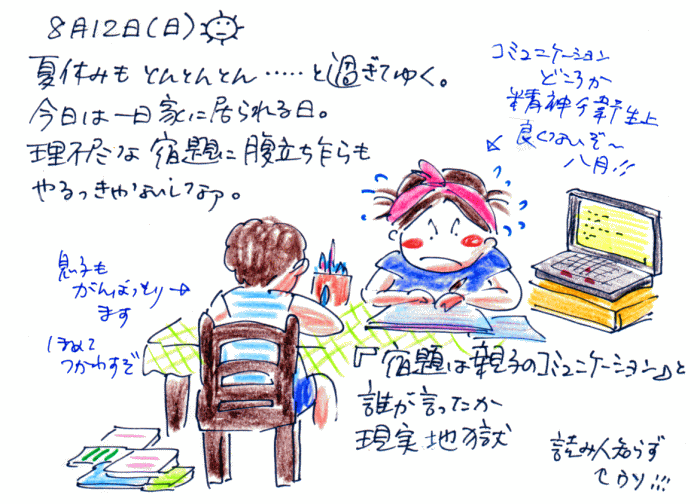 8月12日(日)
夏休みも とんとんとん……と過ぎてゆく。
今日は一日家に居られる日。
理不尽な 宿題に腹立ち乍らも
やるっきゃないしなァ。
コミュニケーション
どころか
精神衛生上
良くないぞ〜
八月!!
息子も
がんばっとり
ます
ほめて
つかわすぞ
『宿題は親子のコミュニケーション』と
誰が言ったか
現実地獄
読み人知らず
ウソ!!!